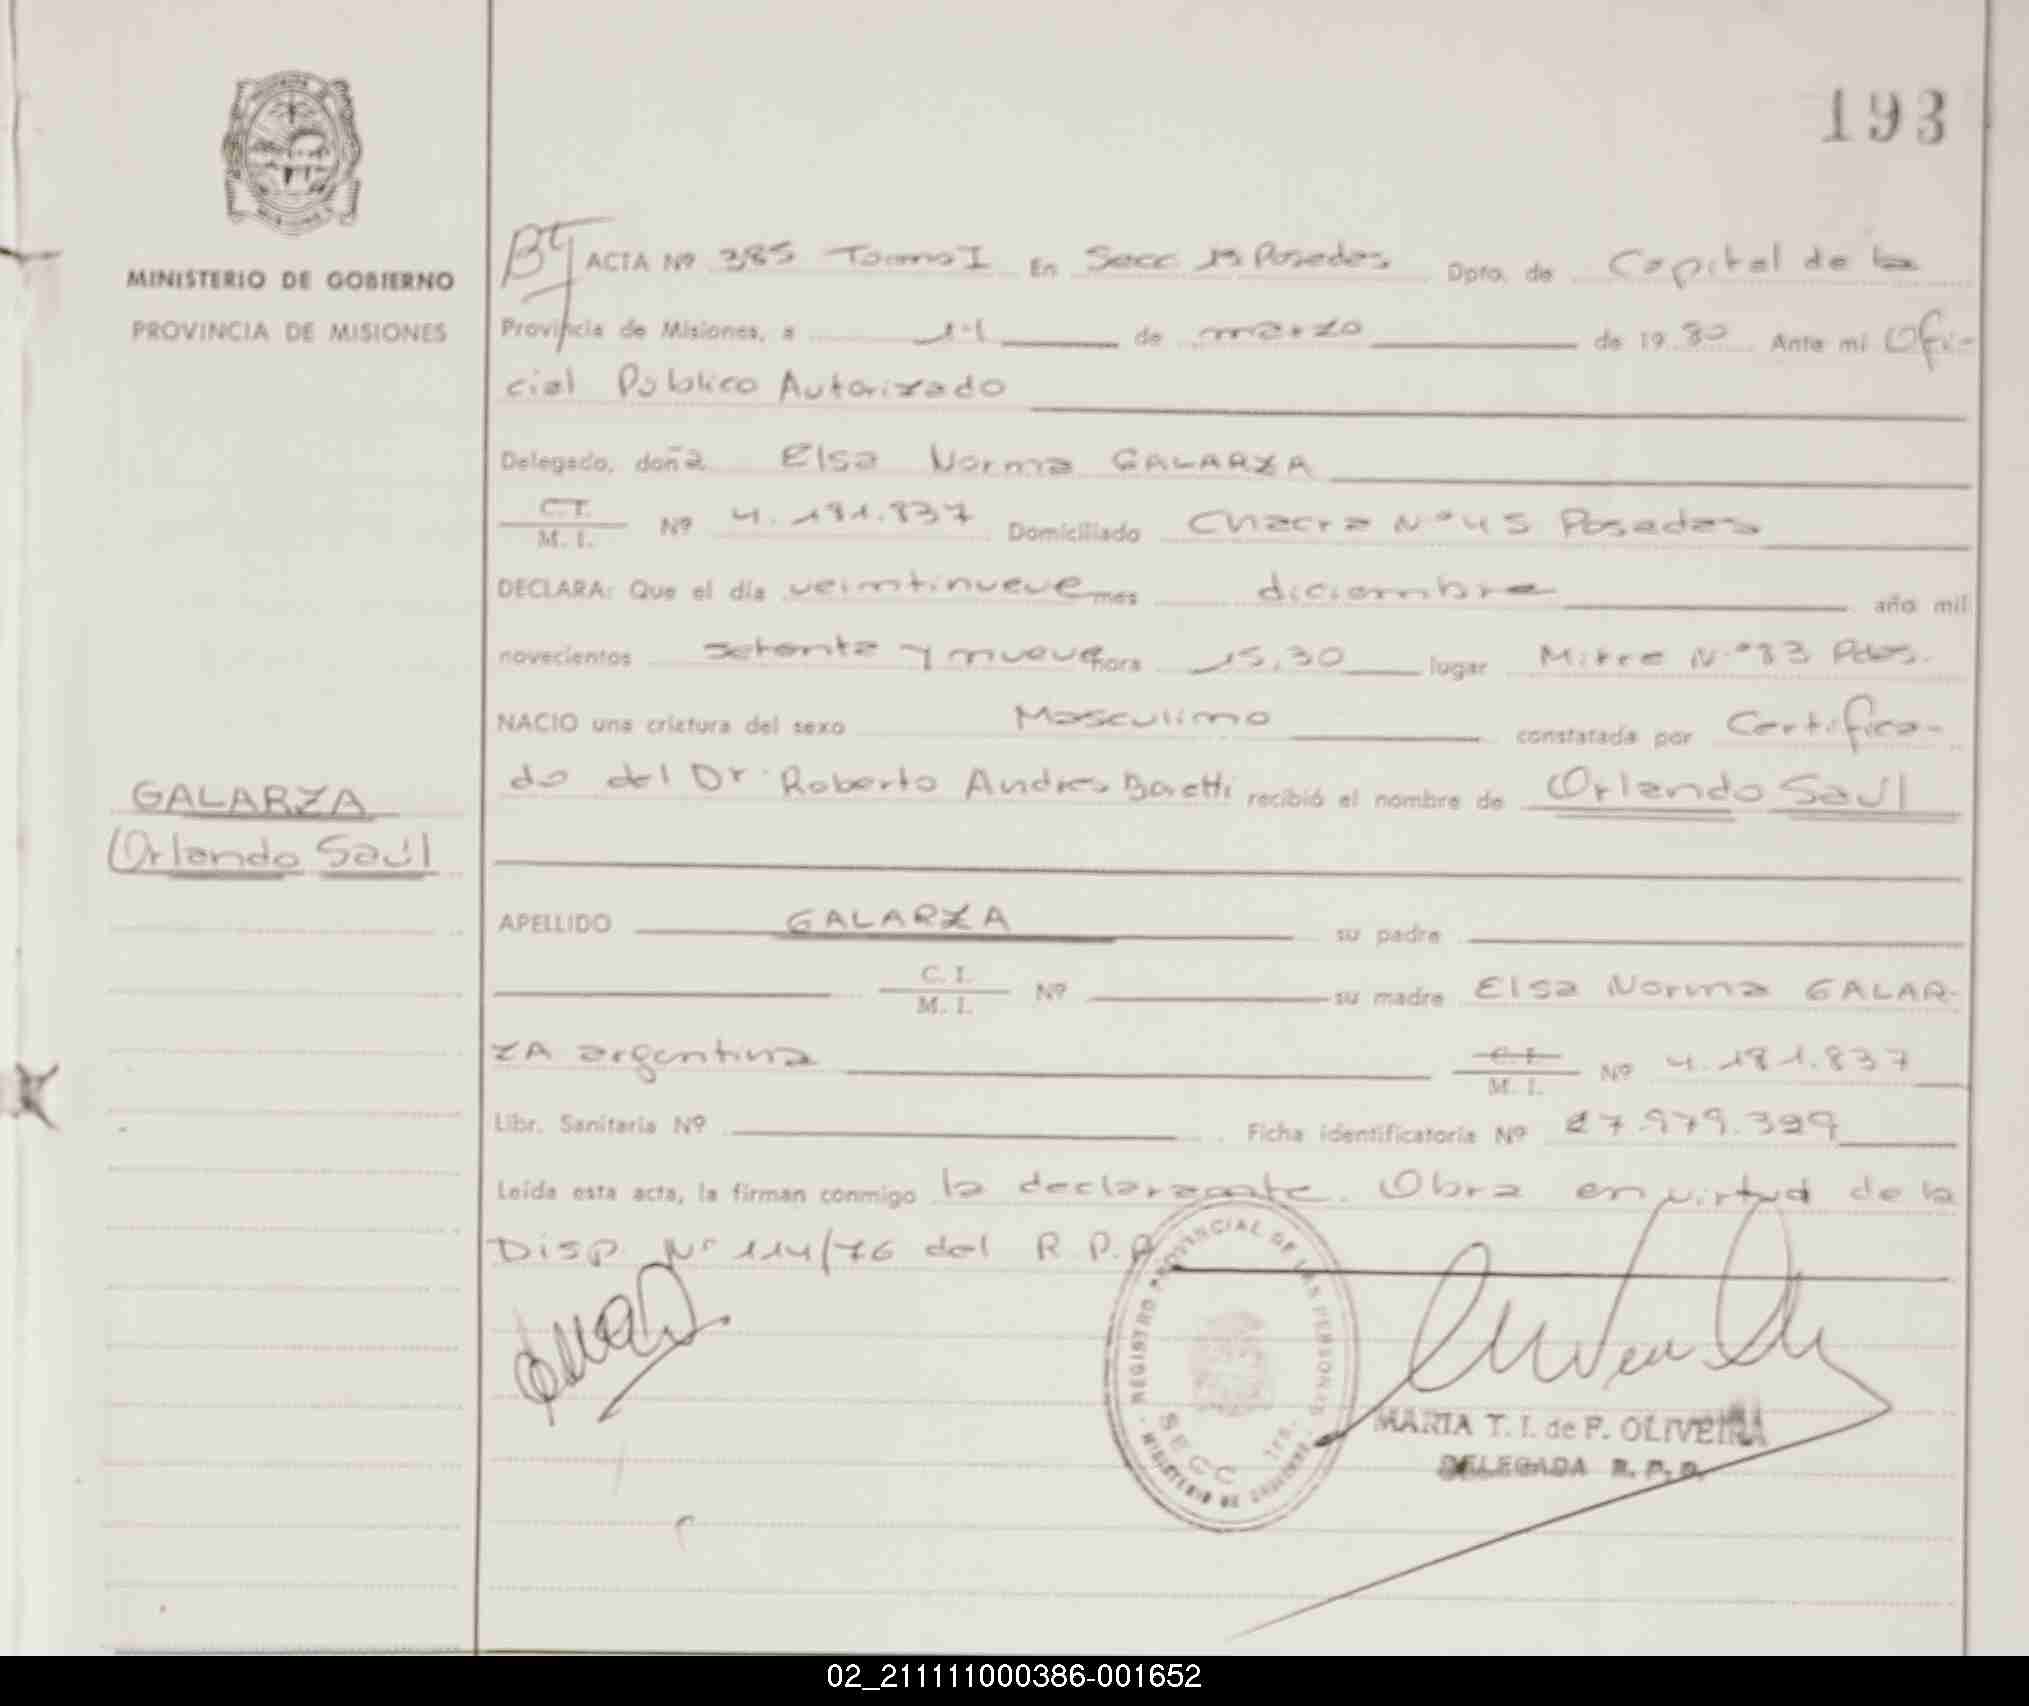 193
MINISTERIO DE GOBIERNO
PROVINCIA DE MISIONES
ACTA Nº 385 Tomo I En Secc 1ª Posadas Dpto. de Capital de la
Provincia de Misiones, a 11 de marzo de 1980 Ante mí Ofi-
cial Público Autorizado
Delegado, doña Elsa Norma GALARZA
C.I. M. I. Nº 4.181.837 Domiciliado Chacra Nº 45 Posadas
DECLARA: Que el día veintinueve mes diciembre año mil
novecientos setenta y nueve hora 15,30 lugar Mitre Nº 83 Pdas.
NACIO una criatura del sexo Masculino constatada por Certifica-
do del Dr. Roberto Andres recibió el nombre de Orlando Saúl
GALARZA
Orlando Saúl
APELLIDO GALARZA su padre
C. I. M. I. Nº su madre Elsa Norma GALAR-
ZA argentina C. I. M. I. Nº 4.181.837
Libr. Sanitaria Nº Ficha identificatoria Nº 27.979.329
Leída esta acta, la firman conmigo la declarante. Obra en virtud de la
Disp. Nº 114/76 del R.P.P
REGISTRO PROVINCIAL DE LAS PERSONAS
SECC 1ra.
MINISTERIO DE GOBIERNO
MARIA T. I. de P. OLIVEIRA
DELEGADA R. P. P.
02_211111000386-001652